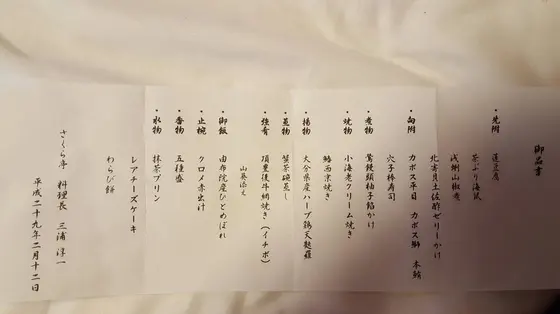 御品書
・先附 蓮豆腐
茶ぶり海鼠
浅蜊山椒煮
北寄貝土佐酢ゼリーかけ
・向附 カボス平目 カボス鰤 本鮪
穴子棒寿司
・煮物 鶯饅頭柚子餡かけ
・焼物 小海老クリーム焼き
鰆西京焼き
・揚物 大分県産ハーブ鶏天麩羅
・蒸物 蟹茶碗蒸し
・強肴 頂豊後牛網焼き(イチボ)
山葵添え
・御飯 由布院産ひとめぼれ
・止椀 クロメ赤出汁
・香物 五種盛
・水物 抹茶プリン
レアチーズケーキ
わらび餅
さくら亭 料理長 三浦淳一
平成二十九年二月十二日